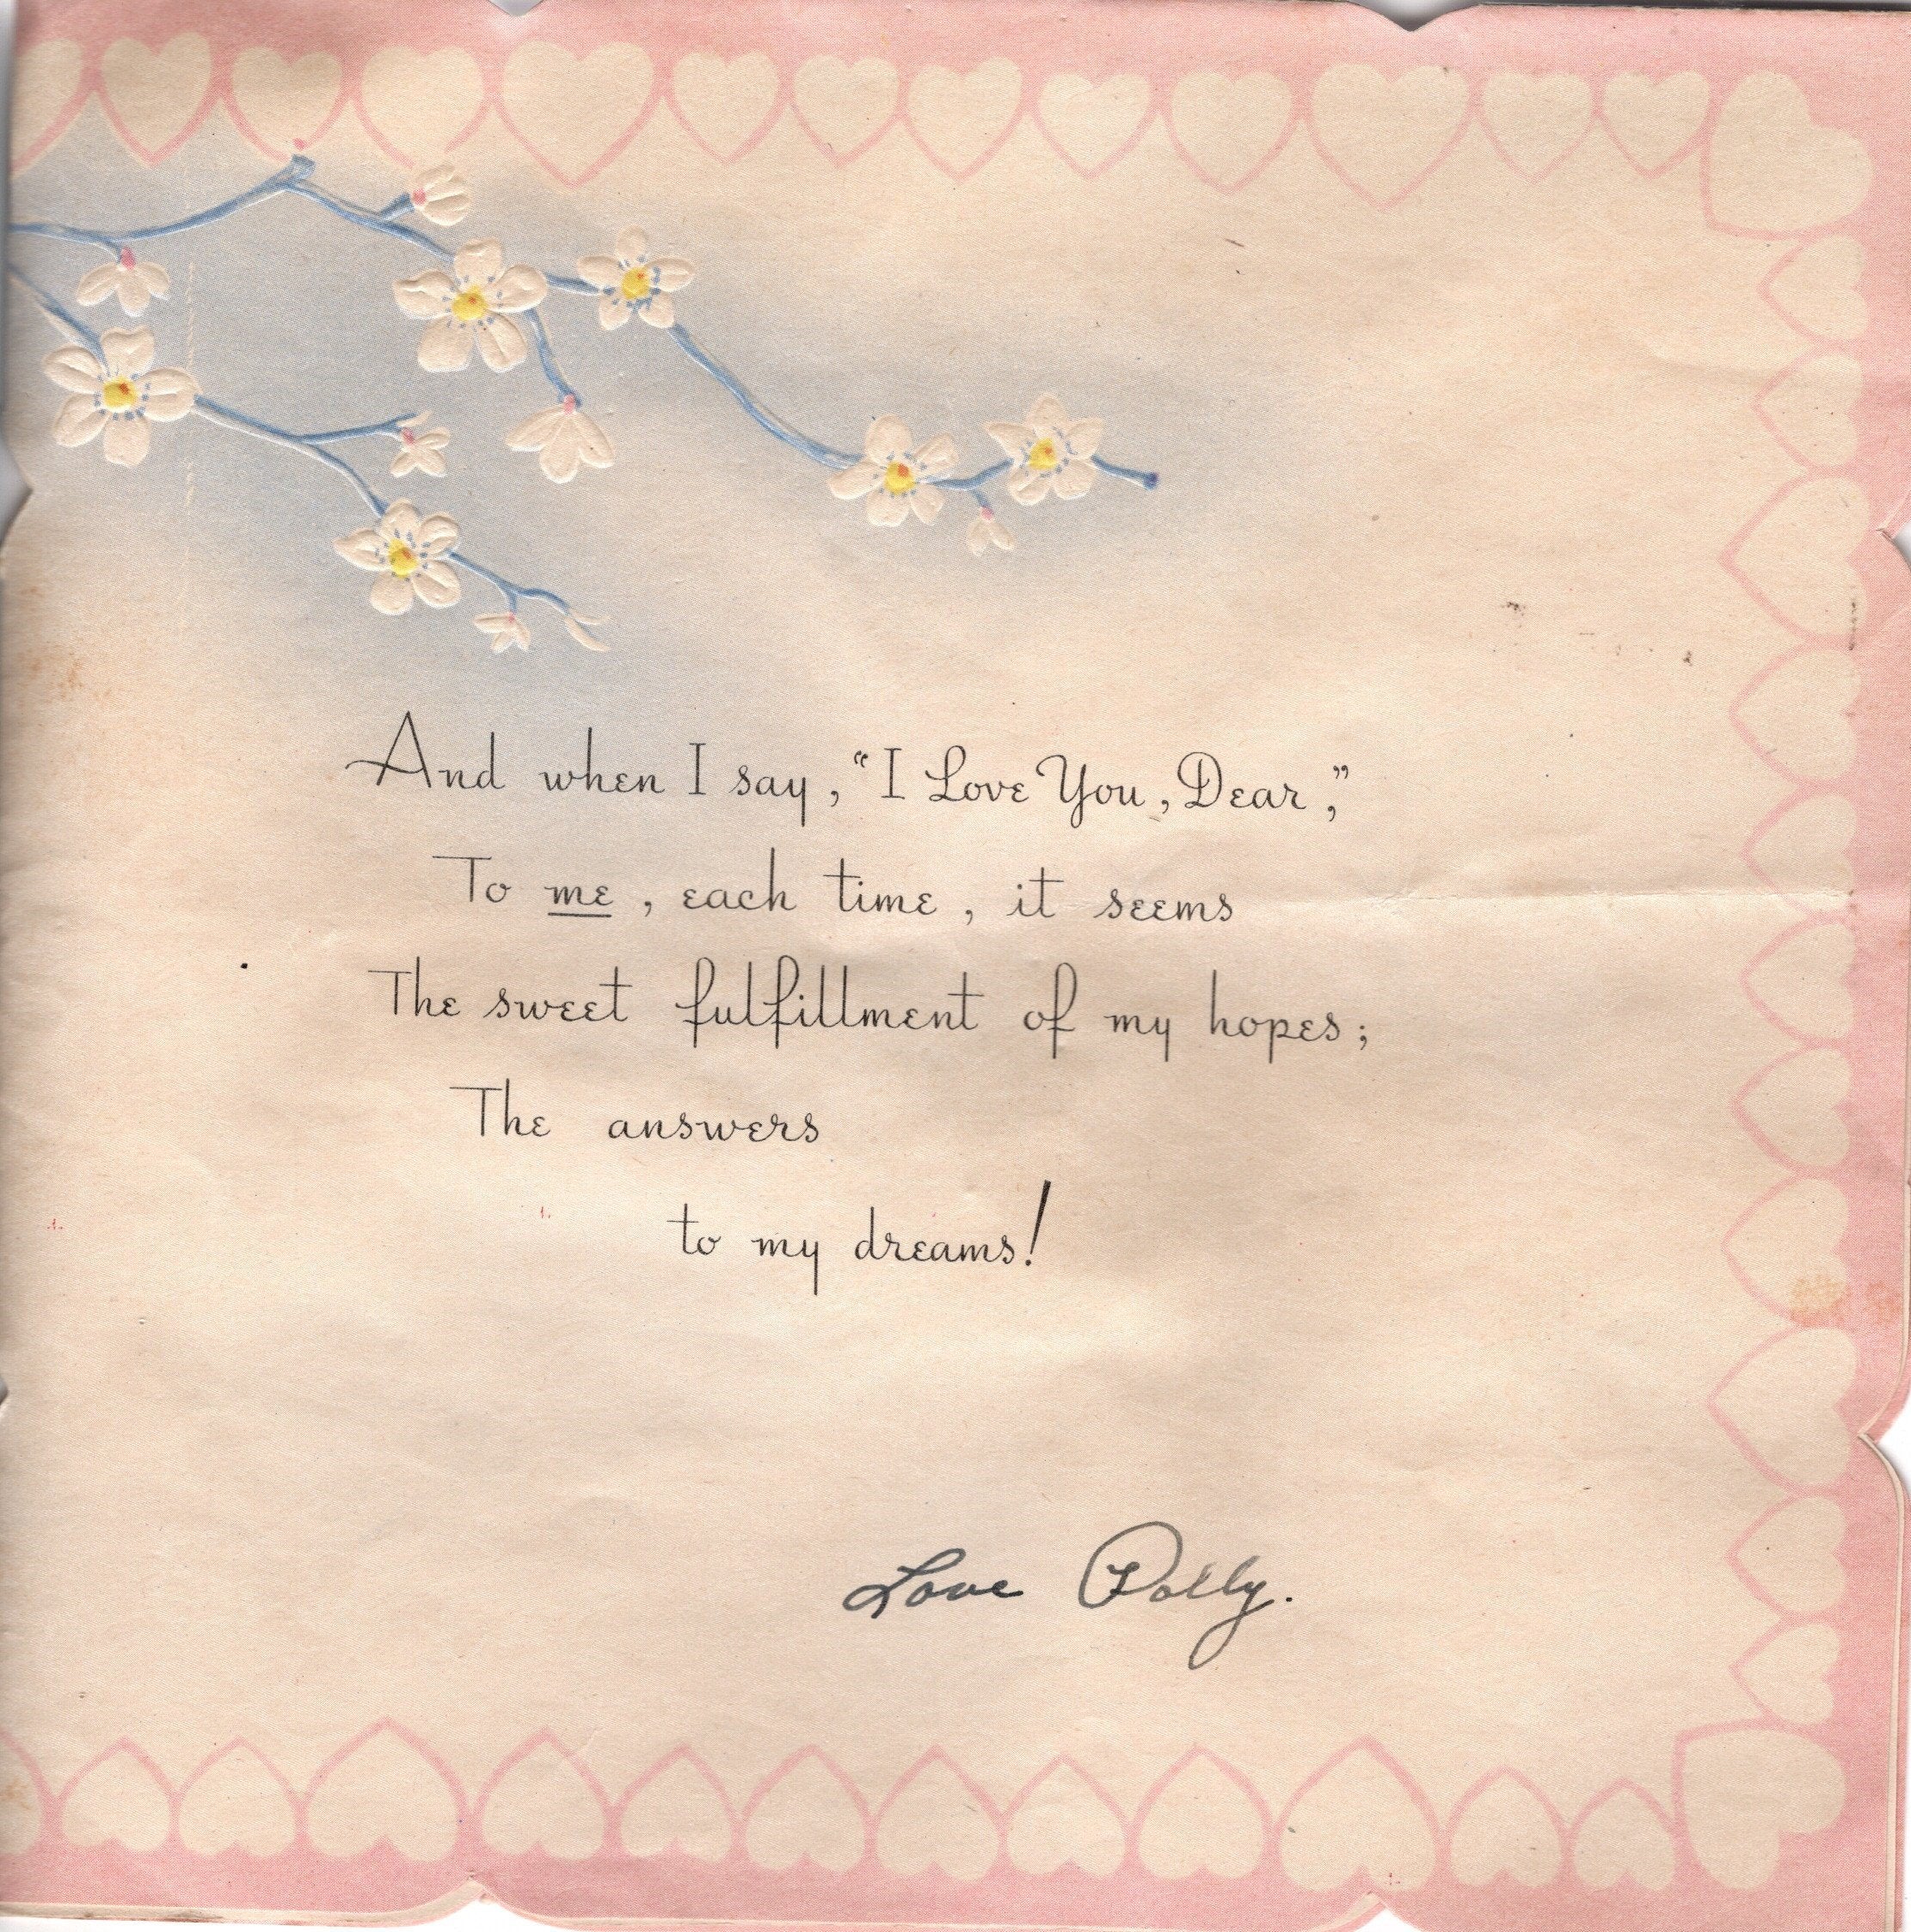 And when I say, “I Love You, Dear,”
To me, each time, it seems
The sweet fulfillment of my hopes;
The answers
to my dreams!
Love Polly.